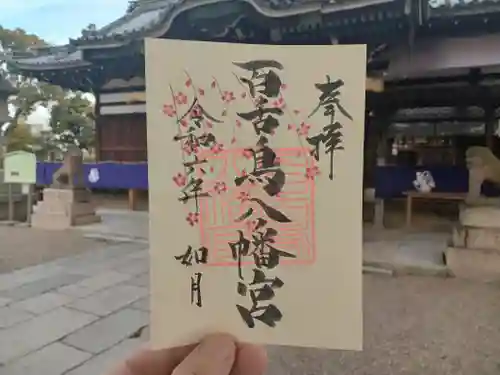 奉拝
百舌鳥八幡宮
令和六年 如月